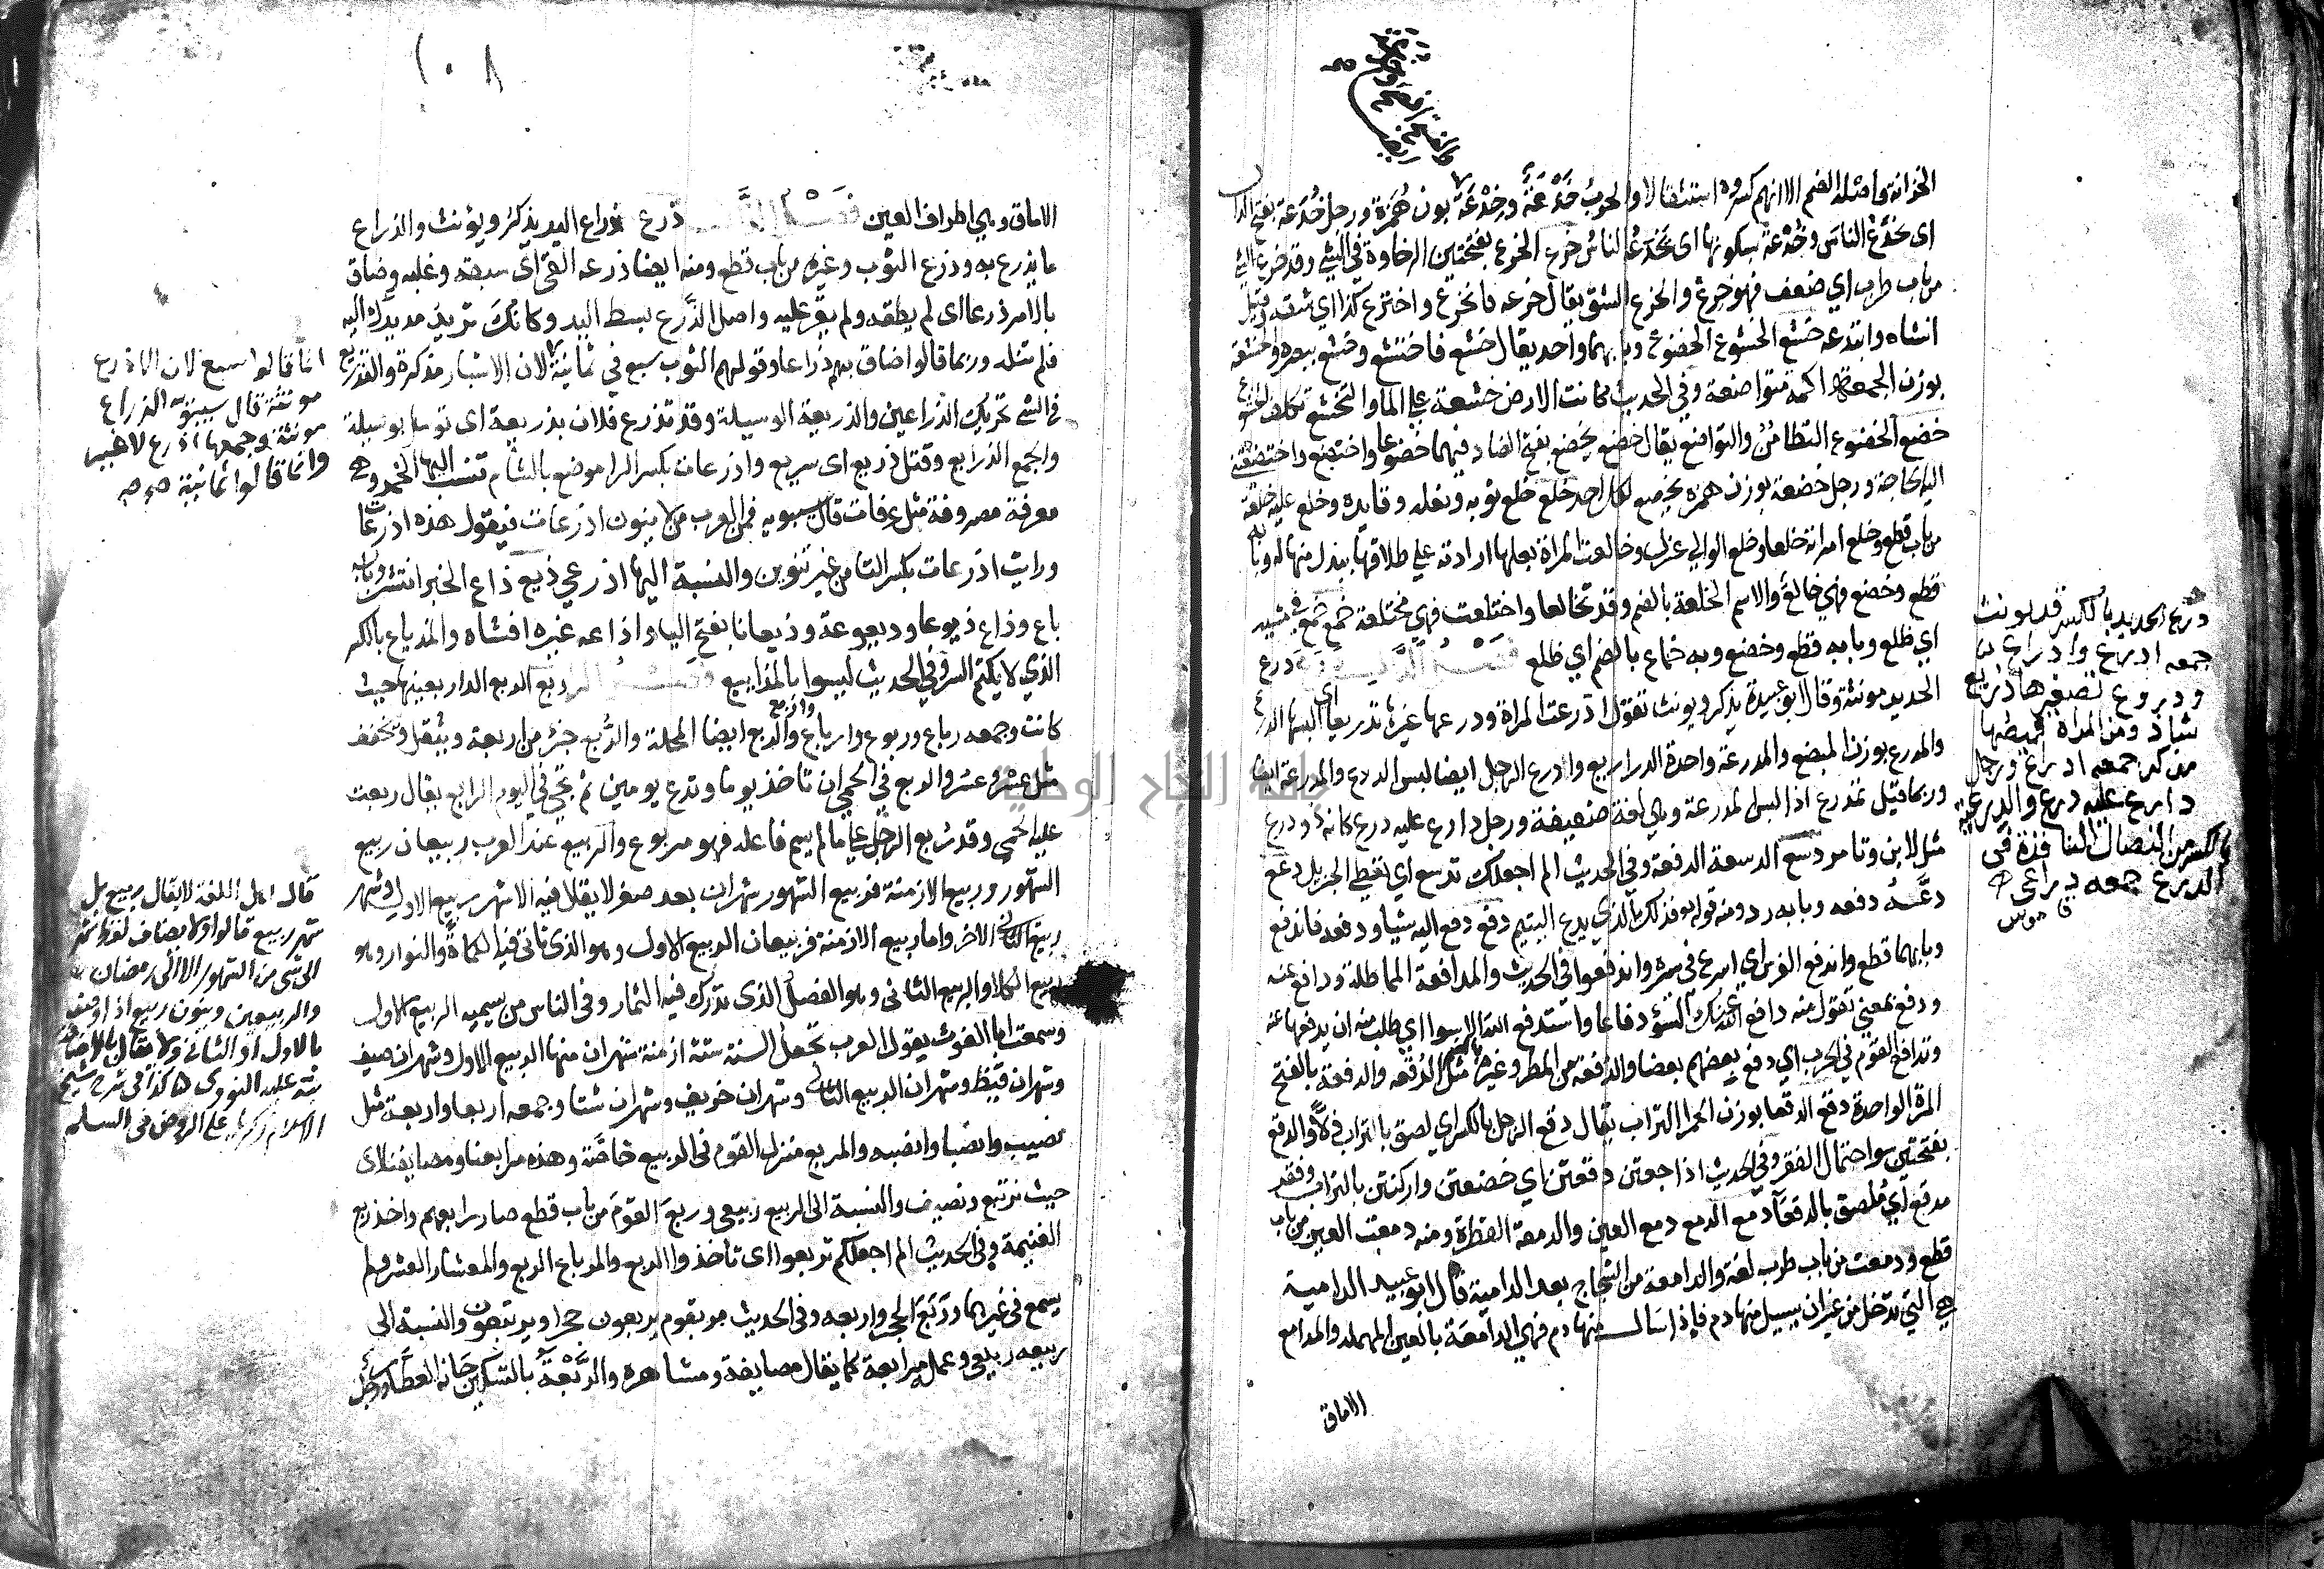 الخزانة واصله الضم الا انهم كسروه استثقالا والحرب خَدْعَة وخُدْعَة بوزن هُمَزة ورجل خُدَعة بفتح الدال
اى يخدع الناس وخُدْعة بسكونها اى يخدعه الناس خرع الخرع بفتحتين الرخاوة في الشي وقد خرع الشي
من باب طرب اي ضعف فهو خرع والخرع الشق يقال خرعه فانخرع واخترع كذا اي شقه وقيل
انشاه وابتدعه خشع الخشوع الخضوع وبابهما واحد يقال خشع فاختشع وخشع ببصره والخشعة
بوزن الجمعة اكمة متواضعة وفي الحديث كانت الارض خشعة على الما والتخشع تكلف الخشوع
خضع الخضوع التطامن والتواضع يقال خضع يخضع بفتح الضاد فيهما خضوعا واختضع واختضعته
اليه الحاجة ورجل خضعة بوزن همزة يخضع لكل احد خلع خلع ثوبه ونعله وقايده وخلع عليه خلعة
من باب قطع وخلع امراته خلعا وخلع الوالي عزل وخالعت المراة بعلها ارادته علي طلاقها ببذل منها له وباب
قطع وخضع فهي خالع والاسم الخلعة بالضم وقد تخالعا واختلعت فهي مختلعة خمع خمع في مشيه
اي ظلع وبابه قطع وخضع وبه خماع بالضم اي ظلع درع
الحديد مونثة وقال ابو عبيدة يذكر ويونث تقول ادرعت المراة ودرعها غيرها تدريعا اى البسها الدرع
والمدرع بوزن المبضع والمدرعة واحدة الدراريع وادرع الرجل ايضا لبس الدرع والمدرعة ايضا
وربما قيل تمدرع اذا لبس المدرعة وهي لغة ضعيفة ورجل دارع عليه درع كانه ذو درع
مثل لابن وتامر دسع الدسعة الدفعة وفي الحديث الم اجعلك تدسع اي تعطي الجزيل دعع
دَعَّه دفعه وبابه رد ومنه قوله فذلك الذي يدع اليتيم دفع دفع اليه شيا ودفعه فاندفع
وبابهما قطع واندفع الفرس اي اسرع في سيره واندفعوا في الحديث والمدافعة المماطلة ودافع عنه
ودفع بمعني تقول منه دافع الله عنك السؤ دفاعا واستدفع الله الاسوا اي طلب منه ان يدفعها عنه
وتدافع القوم في الحرب اي دفع بعضهم بعضا والدفعة من المطر وغيره بالضم مثل الدفقه والدفعة بالفتح
المرة الواحدة دقع الدقعا بوزن الحمرا التراب يقال دقع الرجل بالكسر اي لصق بالتراب ذلا والدقع
بفتحتين سو احتمال الفقر وفي الحديث اذا جعتن دقعتن اي خضعتن ولزقتن بالتراب وفقر
مدقع اي ملصق بالدقعآ دمع الدمع دمع العين والدمعة القطرة ومنه دمعت العين من باب
قطع ودمعت من باب طرب لغة والدامعة من الشجاج بعد الدامية قال ابو عبيد الدامية
هي التي تدخل من غير ان يسيل منها دم فإذا سال منها دم فهي الدامعة بالعين المهملة والمدامع
الاماق
درع الحديد بالكسر قد يونث
جمعه ادرع وادراع
ودروع تصغيرها دريع
شاذ ومن المراة قميصها
مذكر جمعه ادراع ورجل
دارع عليه درع والدرعية
بالكسر من النصال النافذة في
الدرع جمعه دراعي
قاموس
١٠٨
الاماق وهي اطراف العين ذرع ذراع اليد يذكر ويؤنث والذراع
ما يذرع به وذرع الثوب وغيره من باب قطع ومنه ايضا ذرعه القى اى سبقه وغلبه وضاق
بالامر ذرعا اى لم يطقه ولم يقو عليه واصل الذرع بسط اليد وكانك تريد مد يدك اليه
فلم تنله وربما قالوا ضاق بهم ذراعا وقولهم الثوب سبع في ثمانية لان الاشبار مذكرة والتذريع
في الشي تحريك الذراعين والذريعة الوسيلة وقد تذرع فلان بذريعة اى توسل بوسيلة
والجمع الذرايع وقتل ذريع اى سريع واذرعات بكسر الرا موضع بالشام تنسب اليها الخمر وهي
معرفة مصروفة مثل عرفات قال سيبويه فمن العرب من لا ينون اذرعات فيقول هذه اذرعات
ورايت اذرعات بكسر التا من غير تنوين والنسبة اليها اذرعي ذيع ذاع الخبر انتشر وبابه
باع وذاع ذيوعا وذيعوعة وذيعانا بفتح اليا واذاعه غيره افشاه والمذياع بالكسر
الذي لا يكتم السر وفي الحديث ليسوا بالمذاييع ربع الربع الدار بعينها حيث
كانت وجمعه رباع وربوع وارباع واربع والربع ايضا المحلة والربع جزء من اربعة ويثقل ويخفف
مثل عشر وعسر والربع في الحمى ان تاخذ يوما وتدع يومين ثم تجي في اليوم الرابع يقال ربعت
عليه الحمى وقد ربع الرجل على ما لم يسم فاعله فهو مربوع والربيع عند العرب ربيعان ربيع
الشهور وربيع الازمنة فربيع الشهور شهران بعد صفر لا يقال فيه الا شهر ربيع الاول وشهر
ربيع الثاني الاخر واما ربيع الازمنة فربيعان الربيع الاول وهو الذي تاتي فيه الكماة والنوار وهو
ربيع الكلا والربيع الثانى وهو الفصل الذي تدرك فيه الثمار وفى الناس من يسميه الربيع الاول
وسمعت ابا الغوث يقول العرب تجعل السنة ستة ازمنة شهران منها الربيع الاول وشهران صيف
وشهران قيظ وشهران الربيع الثاني وشهران خريف وشهران شتا وجمعه اربعا واربعة مثل
نصيب وانصبا وانصبه والمربع منزل القوم في الربيع خاصة وهذه مرابعنا ومصايفنا اى
حيث نرتبع ونصيف والنسبة الى الربيع ربيعى وربع القوم من باب قطع صار رابعهم واخذ ربع
الغنيمة وفى الحديث الم اجعلكم تربعوا اى تأخذوا الربع والمرباع الربع والمعشار العشر ولم
يسمع في غيرهما وربع الحجر واربعه وفى الحديث مر بقوم يربعون حجرا ويرتبعون والنسبة الى
ربيعه ربيعى وعمل مرابعة كما يقال مصايفة ومشاهرة والرَّبْعَة بالتسكين جانه العطار ورجل
انما قالوا سبع لان الاذرع
مونثة قال سيبويه الذراع
مونثة وجمعها اذرع لا غير
وانما قالوا ثمانية
قال اهل اللغة لا يقال ربيع بل
شهر ربيع قالوا ولا يضاف لفظ شهر
الى شى من الشهور الا الى رمضان
والربيعين وينون ربيع اذا وصف
بالاول او الثانى ولا يقال بالاضافة
نبه عليه النووى هكذا فى شرح شيخ
الاسلام زكريا على الروض فى السلم
مكتبة النجاح الوطنية